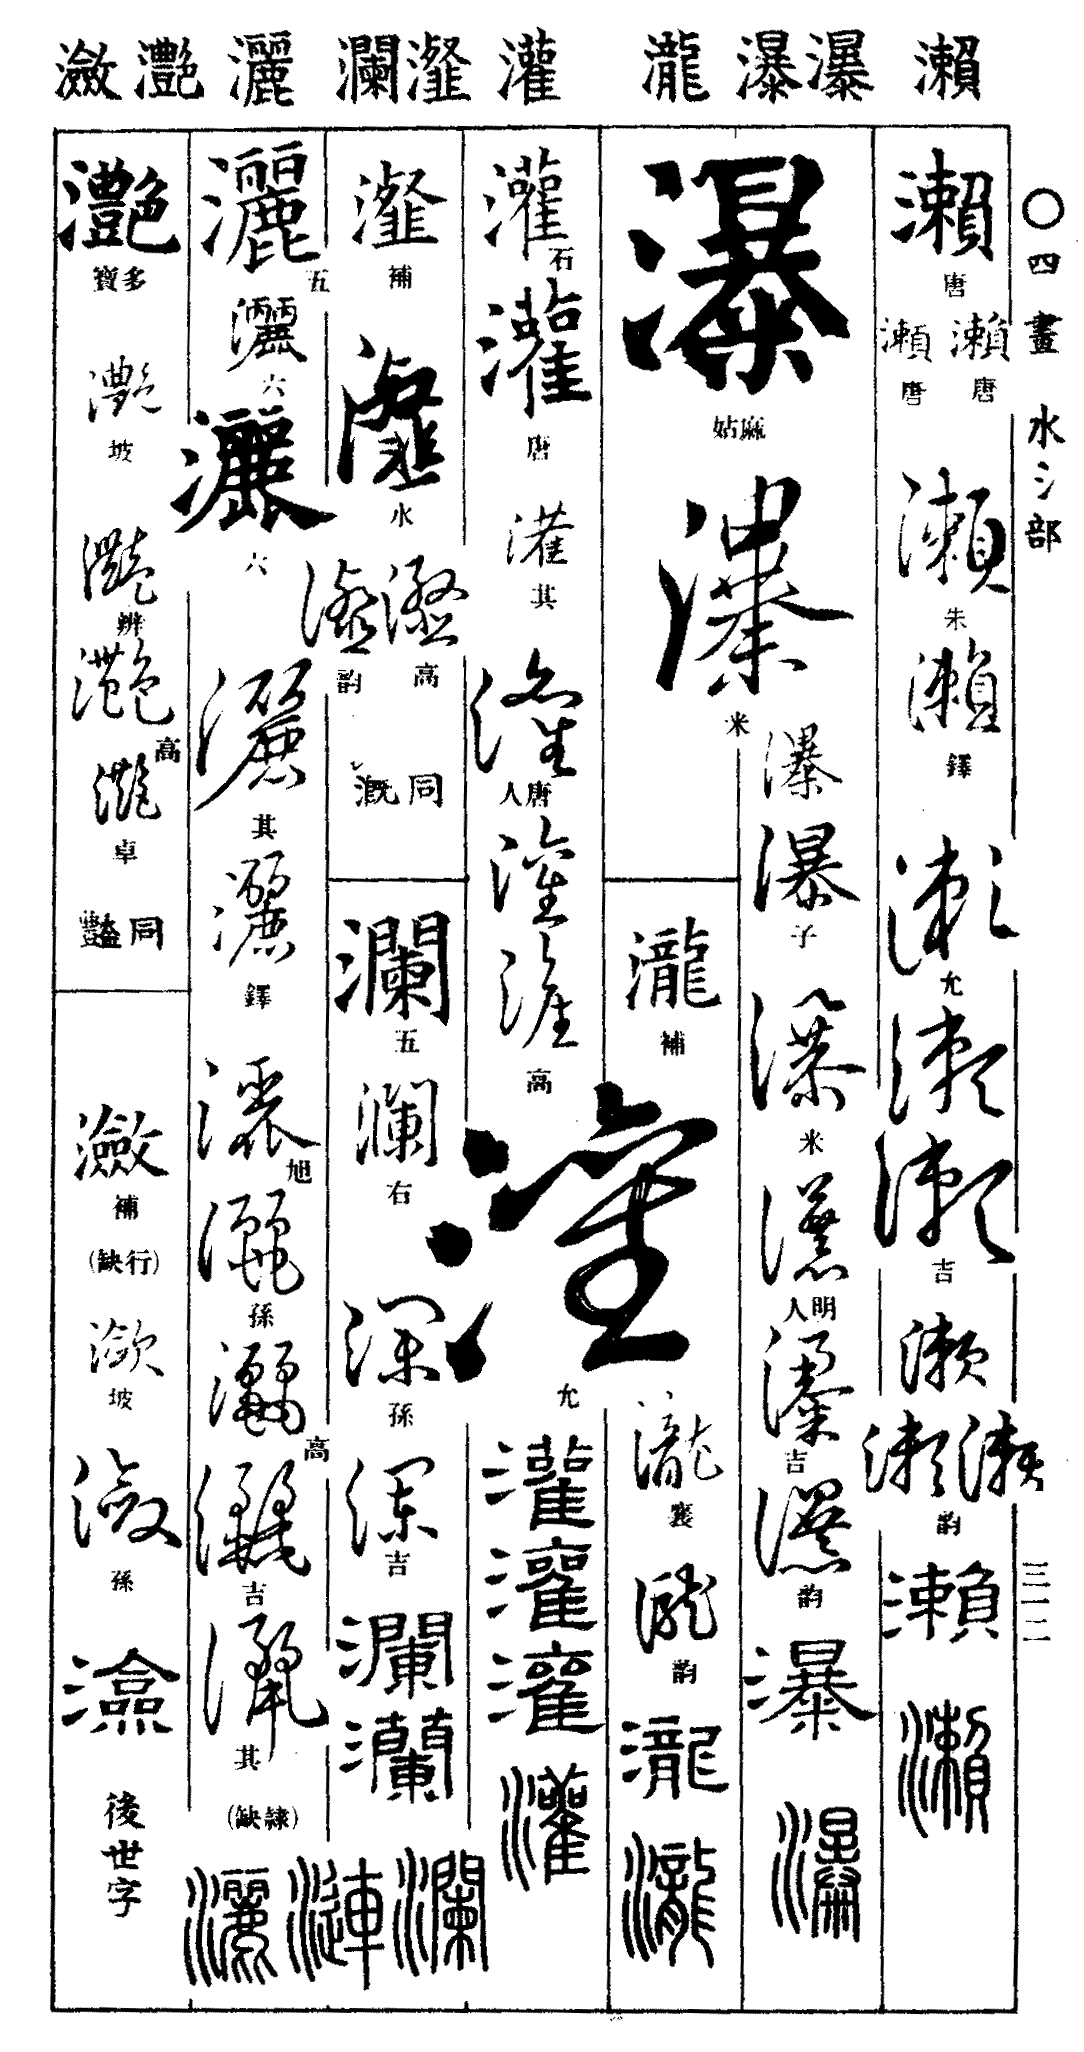 瀨
瀑瀑
瀧
灌
瀣瀾
灑
灔瀲
〇四畫 水氵部
三一二
瀨
唐
瀨 唐
瀨 唐
瀨
朱
瀨
鐸
瀨
允
瀨
瀨
吉
瀨
瀨瀨
韵
瀨
瀨
瀑
麻姑
瀑
米
瀑
瀑
子
瀑
米
瀑
明人
瀑
吉
瀑
韵
瀑
瀑
瀧
補
瀧
襄
瀧
韵
瀧
瀧
灌
石
灌
唐
灌
其
灌
唐人
灌
灌
高
灌
允
灌
灌
灌
灌
瀣
補
瀣
水
瀣 高
瀣 韵
同 溉
瀾
五
瀾
右
瀾
孫
瀾
吉
瀾
瀾
瀾
漣
灑
五
灑
六
灑
六
灑
其
灑
鐸
灑
旭
灑
孫
灑
高
灑
吉
灑
其
(隸缺)
灑
灔
多寶
灔
坡
灔
辨
灔
高
灔
卓
同 豔
瀲
補
(行缺)
瀲
坡
瀲
孫
瀲
後世字